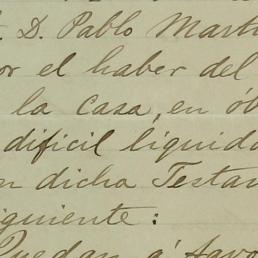 D. Pablo Marti
or el haber del
la casa, en ób
dificil liquida
n dicha Testa
iguiente:
Quedan á favo